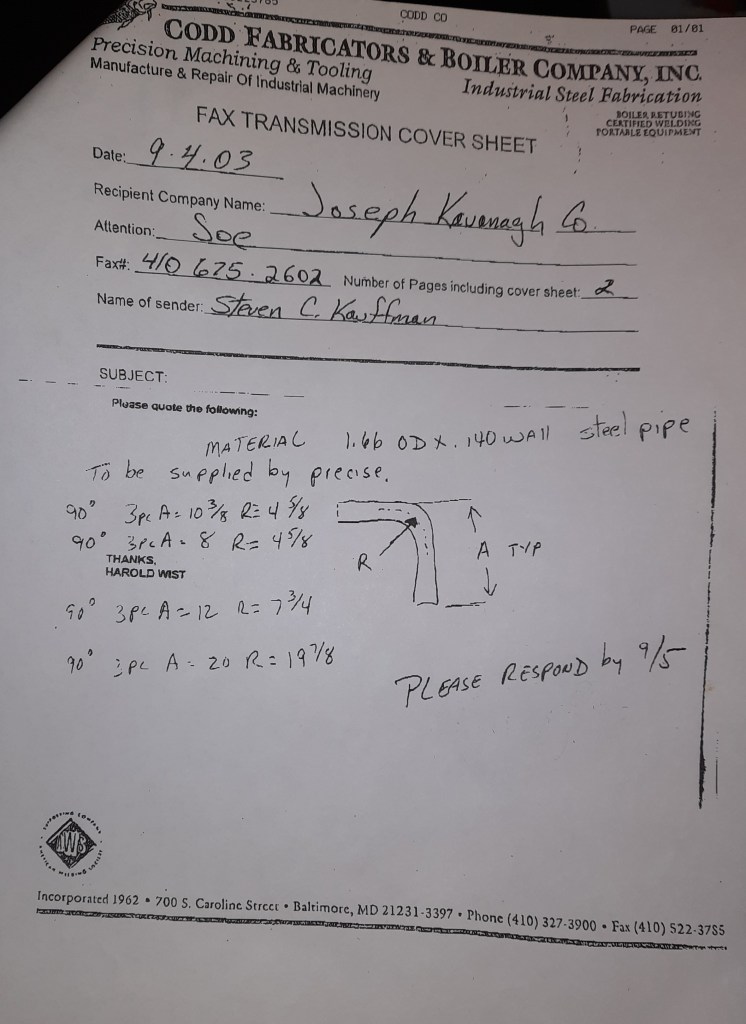 CODD CO
PAGE 01/01
CODD FABRICATORS & BOILER COMPANY, INC.
Precision Machining & Tooling
Industrial Steel Fabrication
Manufacture & Repair Of Industrial Machinery
BOILER RETUBING
CERTIFIED WELDING
PORTABLE EQUIPMENT
FAX TRANSMISSION COVER SHEET
Date: 9.4.03
Recipient Company Name: Joseph Kavanagh Co.
Attention: Joe
Fax#: 410 675.2602 Number of Pages including cover sheet: 2
Name of sender: Steven C. Kauffman
SUBJECT:
Please quote the following:
MATERIAL 1.66 OD X .140 WALL steel pipe
To be supplied by precise.
90° 3pc A= 10 3/8 R= 4 5/8
90° 3pc A= 8 R= 4 5/8
THANKS,
HAROLD WIST
R
A TYP
90° 3pc A= 12 R= 7 3/4
90° pc A= 20 R= 19 7/8
PLEASE RESPOND by 9/5
AWS
Incorporated 1962 • 700 S. Caroline Street • Baltimore, MD 21231-3397 • Phone (410) 327-3900 • Fax (410) 522-3785